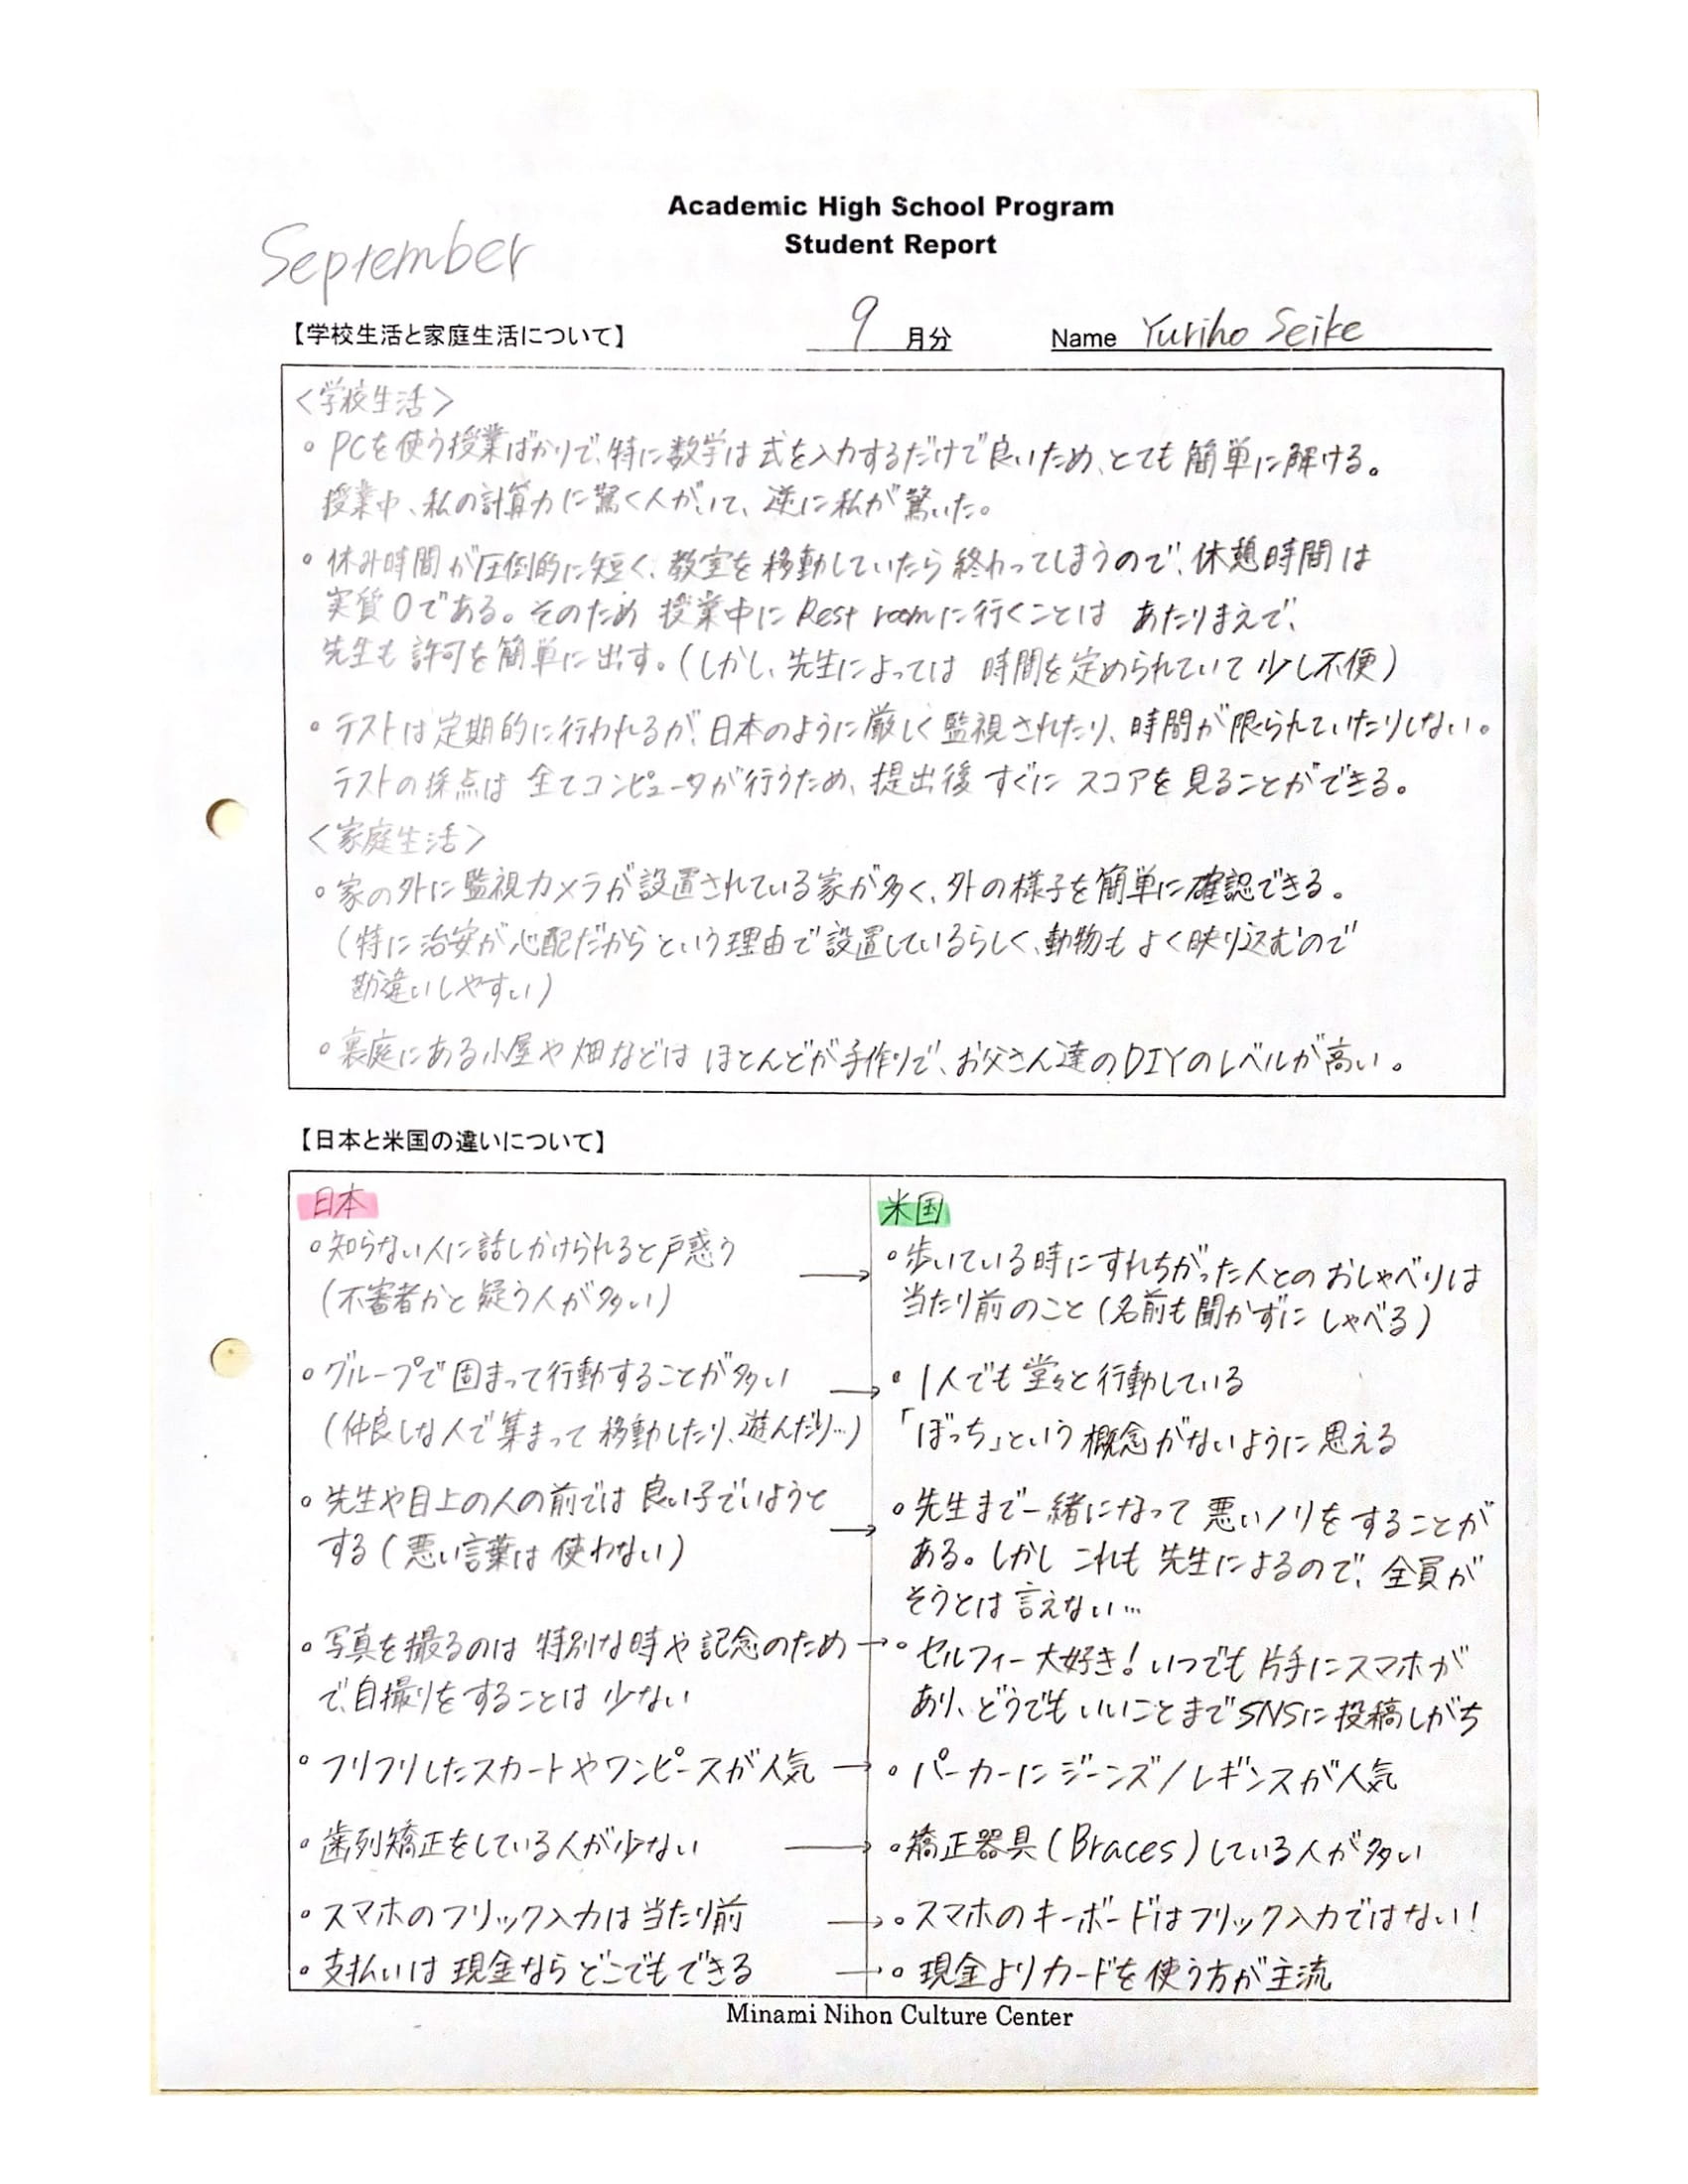 Academic High School Program
Student Report
September
【学校生活と家庭生活について】 9 月分 Name Yuriho Seike
<学校生活>
。PCを使う授業ばかりで、特に数学は式を入力するだけで良いため、とても簡単に解ける。
授業中、私の計算力に驚く人がいて、逆に私が驚いた。
。休み時間が圧倒的に短く、教室を移動していたら終わってしまうので、休憩時間は
実質0である。そのため授業中にRest roomに行くことは あたりまえで、
先生も許可を簡単に出す。(しかし、先生によっては 時間を定められていて少し不便)
。テストは定期的に行われるが、日本のように厳しく監視されたり、時間が限られていたりしない。
テストの採点は全てコンピュータが行うため、提出後すぐにスコアを見ることができる。
<家庭生活>
。家の外に監視カメラが設置されている家が多く、外の様子を簡単に確認できる。
(特に治安が心配だからという理由で設置しているらしく、動物もよく映り込むので
勘違いしやすい)
。裏庭にある小屋や畑などは ほとんどが手作りで、お父さん達のDIYのレベルが高い。
【日本と米国の違いについて】
日本
。知らない人に話しかけられると戸惑う →
(不審者かと疑う人が多い)
。グループで固まって行動することが多い →
(仲良しな人で集まって移動したり、遊んだり…)
。先生や目上の人の前では良い子でいようと
する(悪い言葉は使わない) →
。写真を撮るのは特別な時や記念のため →
で、自撮りをすることは少ない
。フリフリしたスカートやワンピースが人気 →
。歯列矯正をしている人が少ない →
。スマホのフリック入力は当たり前 →
。支払いは現金ならどこでもできる →
米国
。歩いている時にすれちがった人とのおしゃべりは
当たり前のこと(名前も聞かずにしゃべる)
。1人でも堂々と行動している
「ぼっち」という概念がないように思える
。先生まで一緒になって悪いノリをすることが
ある。しかしこれも先生によるので、全員が
そうとは言えない…
。セルフィー大好き!いつでも片手にスマホが
あり、どうでもいいことまでSNSに投稿しがち
。パーカーにジーンズ/レギンスが人気
。矯正器具(Braces)している人が多い
。スマホのキーボードはフリック入力ではない!
。現金よりカードを使う方が主流
Minami Nihon Culture Center